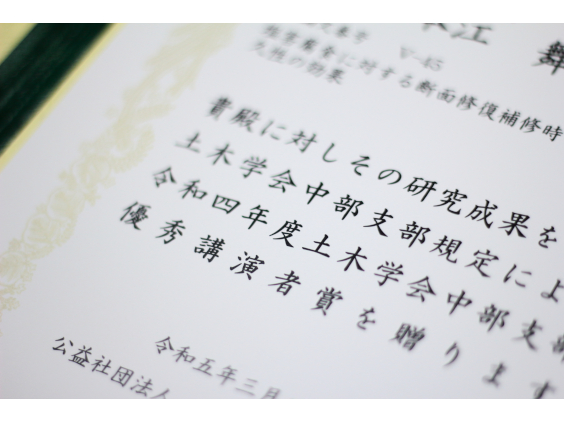 江 舞
番号 V-45
塩害に対する断面修復補修時
久性の効果
貴殿に対しその研究成果を
土木学会中部支部規定によ
令和四年度土木学会中部支部
優秀講演者賞を贈ります
令和五年三月
公益社団法人